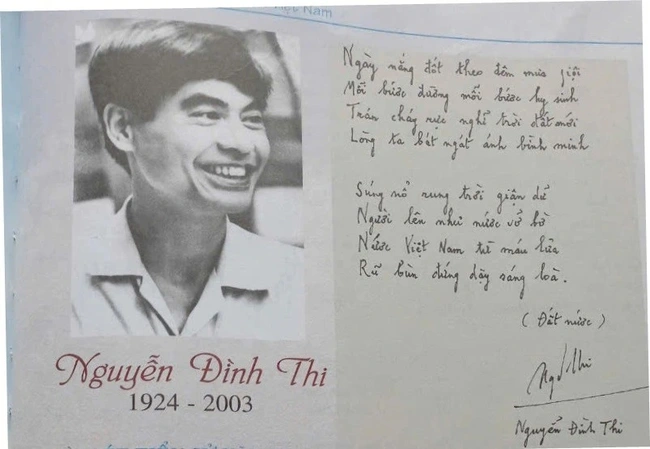 Nam
Ngày nắng đốt theo đêm mưa giội
Mỗi bước đường mỗi bước hy sinh
Trán cháy rực nghĩ trời đất mới
Lòng ta bát ngát ánh bình minh
Súng nổ rung trời giận dữ
Người lên như nước vỡ bờ
Nước Việt Nam từ máu lửa
Rũ bùn đứng dậy sáng loà.
(Đất nước)
Nguyễn Đình Thi
Nguyễn Đình Thi
1924 - 2003